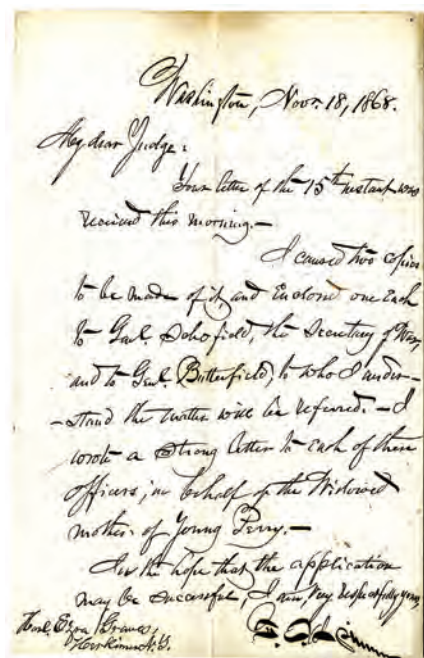 Washington, Nov. 18, 1868.
My dear Judge:
Your letter of the 15th instant was
received this morning.—
I caused two copies
to be made of it, and Enclosed one Each
to Genl. Schofield, the Secretary of War,
and to Genl. Butterfield, to who I under-
-stand the matter will be referred.— I
wrote a strong letter to Each of these
officers, in behalf of the Widowed
mother of Young Perry.—
In the hope that the application
may be successful, I am, Very respectfully yours,
Honl. Ezra Graves,
Herkimer N.Y.